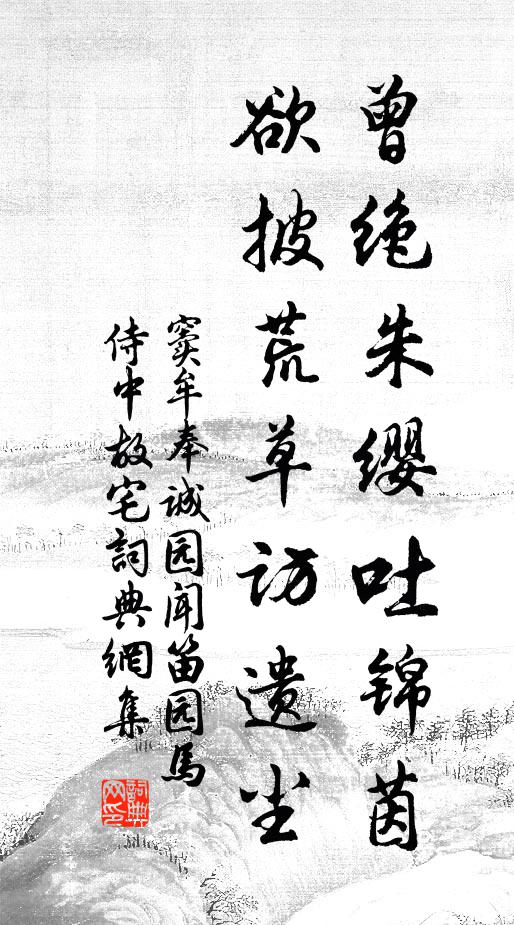 曾绝朱缨吐锦茵
欲披荒草访遗尘
窦牟奉诚园闻笛园马
侍中故宅詞典網集
詞典
网印